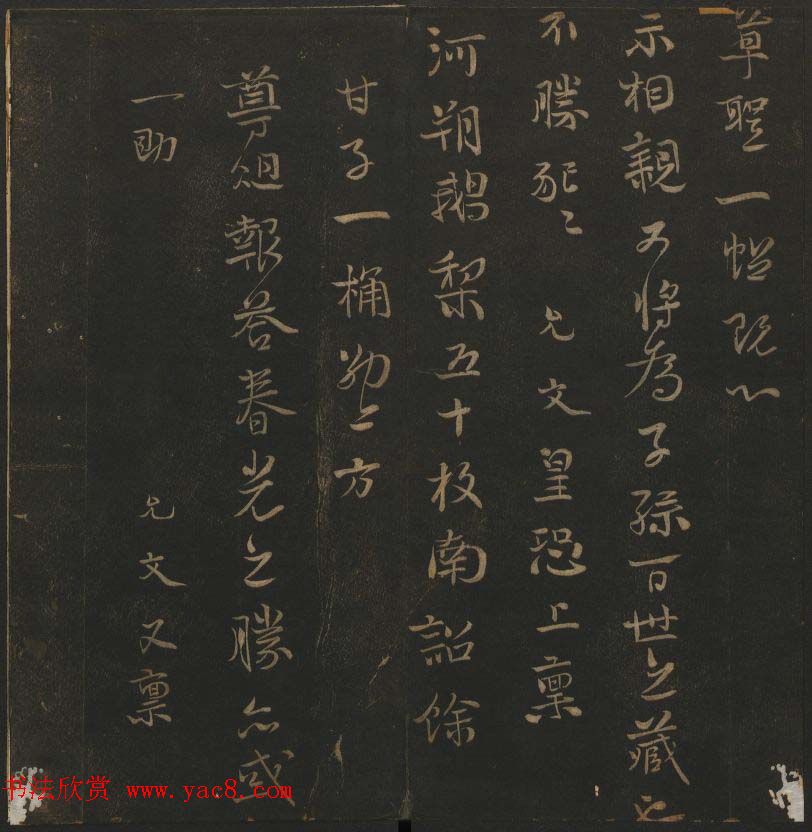 草聖一幅既以
示相親又將為子孫百世之藏也
不勝 允文皇恐上稟
河朔鵝梨五十枚南詔餘
甘子一桶 方
尊俎報答春光之勝亦或
一助 允文又稟
书法欣赏 www.yac8.com